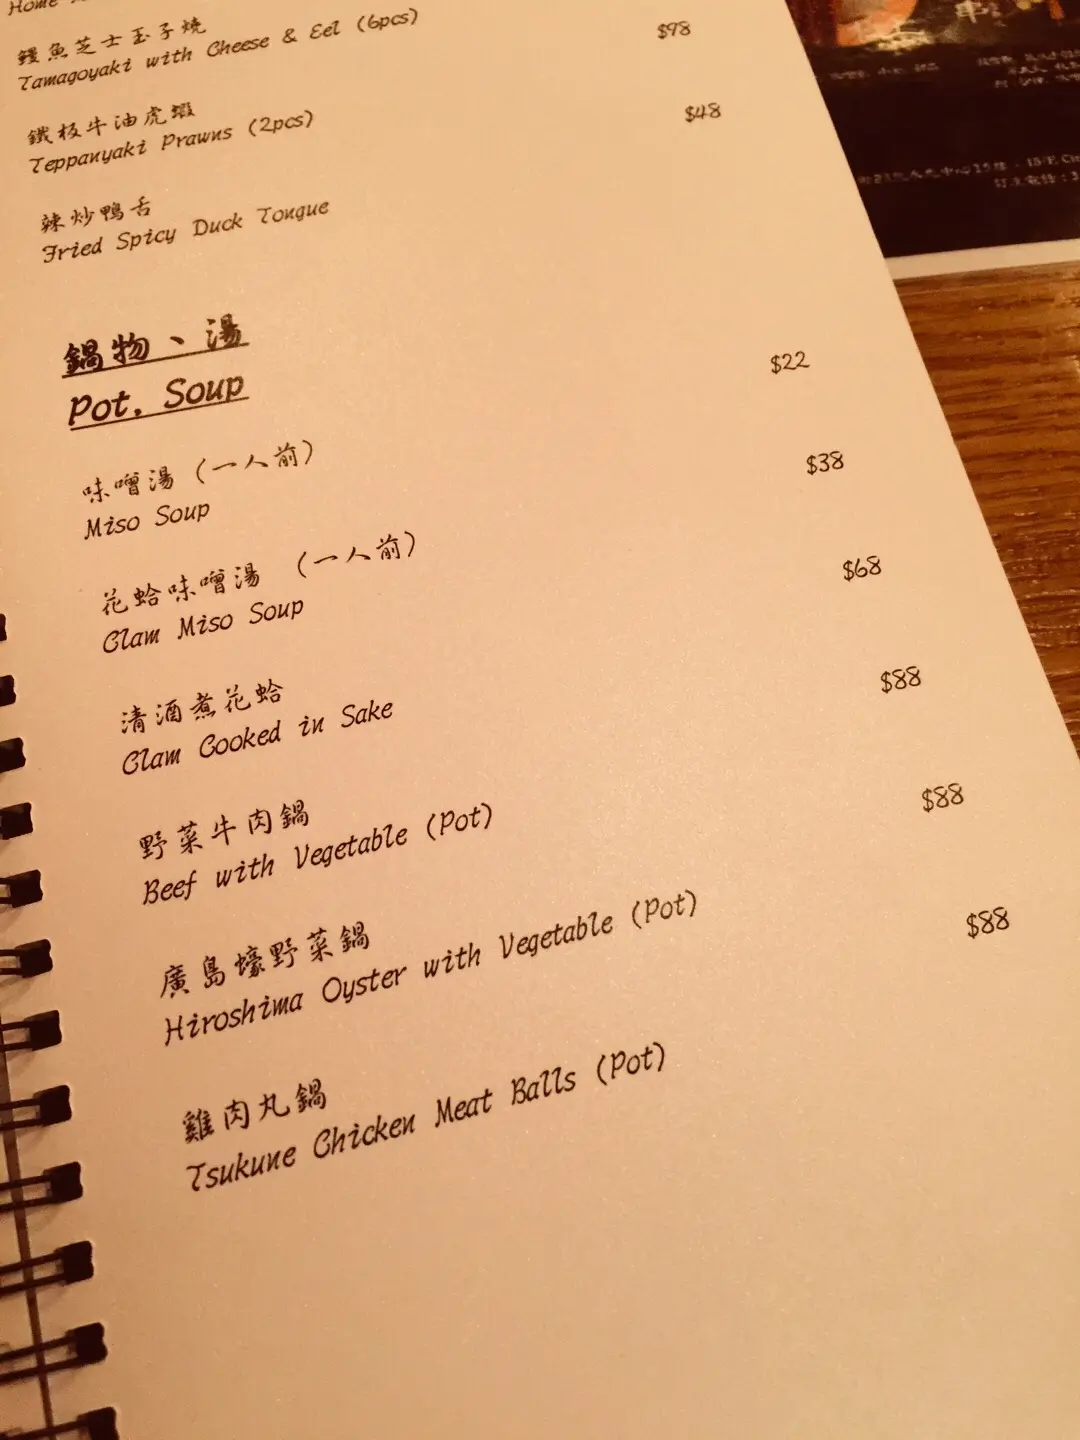 Home
鰻魚芝士玉子燒
Tamagoyaki with Cheese & Eel (6pcs)
鐵板牛油虎蝦 $98
Teppanyaki Prawns (2pcs)
辣炒鴨舌 $48
Fried Spicy Duck Tongue
鍋物、湯
Pot. Soup
味噌湯 (一人前) $22
Miso Soup
花蛤味噌湯 (一人前) $38
Clam Miso Soup
清酒煮花蛤 $68
Clam Cooked in Sake
野菜牛肉鍋 $88
Beef with Vegetable (Pot)
廣島蠔野菜鍋 $88
Hiroshima Oyster with Vegetable (Pot)
雞肉丸鍋 $88
Tsukune Chicken Meat Balls (Pot)
串